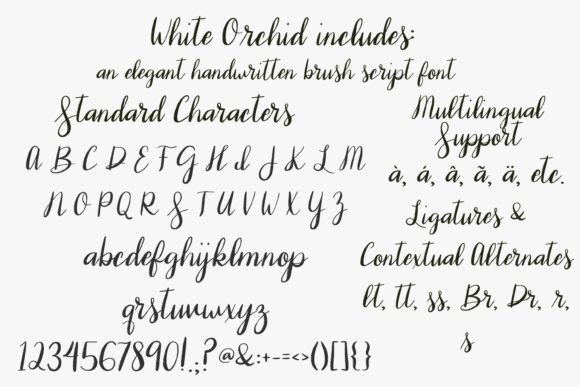 White Orchid includes:
an elegant handwritten brush script font
Standard Characters
A B C D E F G H I J K L M
N O P Q R S T U V W X Y Z
abcdefghijklmnop
qrstuvwxyz
1234567890!.;?@&:+-=<>()[]{}
Multilingual
Support
à, á, â, ã, ä, etc.
Ligatures &
Contextual Alternates
lt, tt, ss, Br, Dr, r,
s